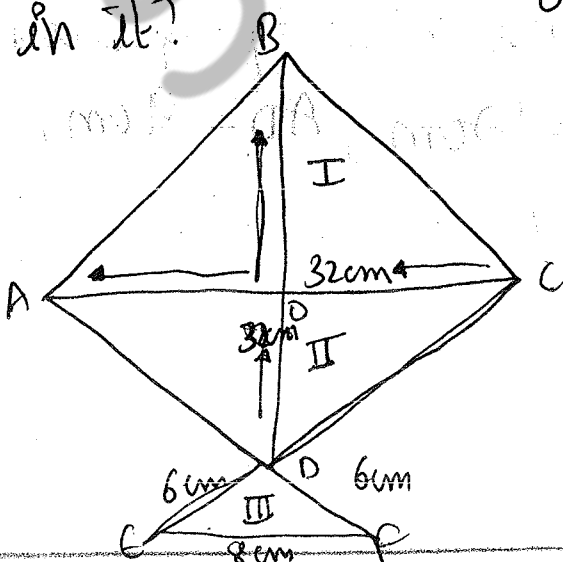 in it?
B
I
32cm
A
C
O
32cm
II
D
6cm
6cm
III
E
F
8cm